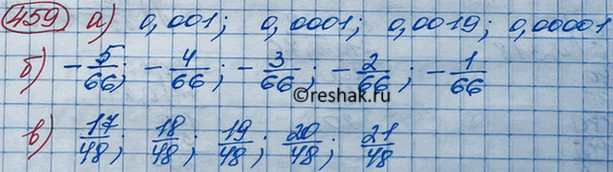 459 а) 0,001; 0,0001; 0,0019; 0,00001
б) -5/66; -4/66; -3/66; -2/66; -1/66
©reshak.ru
в) 17/48; 18/48; 19/48; 20/48; 21/48